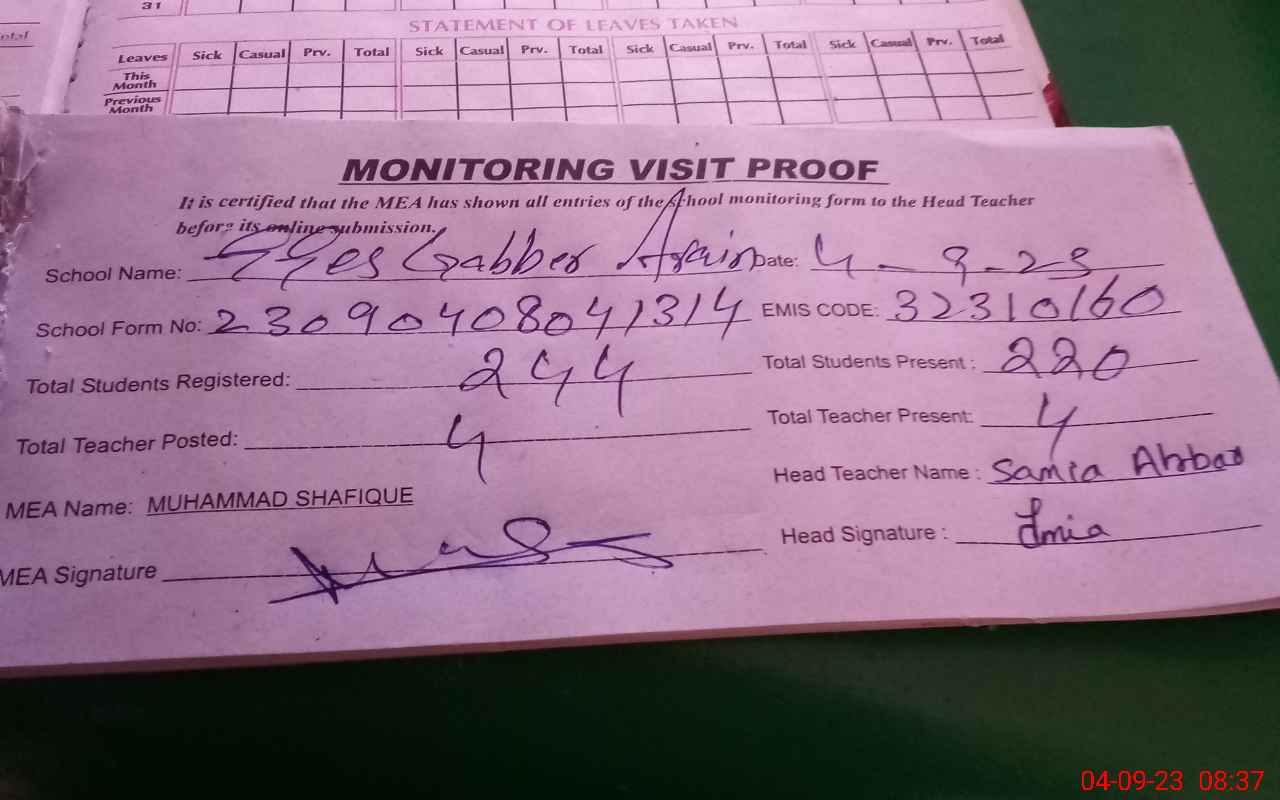 31
otal
STATEMENT OF LEAVES TAKEN
Leaves Sick Casual Prv. Total Sick Casual Prv. Total Sick Casual Prv. Total Sick Casual Prv. Total
This Month
Previous Month
MONITORING VISIT PROOF
It is certified that the MEA has shown all entries of the School monitoring form to the Head Teacher
before its online submission.
School Name: GGES Gabber Arain Date: 4-9-23
School Form No: 23090408041314 EMIS CODE: 32310160
Total Students Registered: 244 Total Students Present : 220
Total Teacher Posted: 4 Total Teacher Present: 4
MEA Name: MUHAMMAD SHAFIQUE Head Teacher Name : Samia Abbas
MEA Signature Head Signature :
04-09-23 08:37